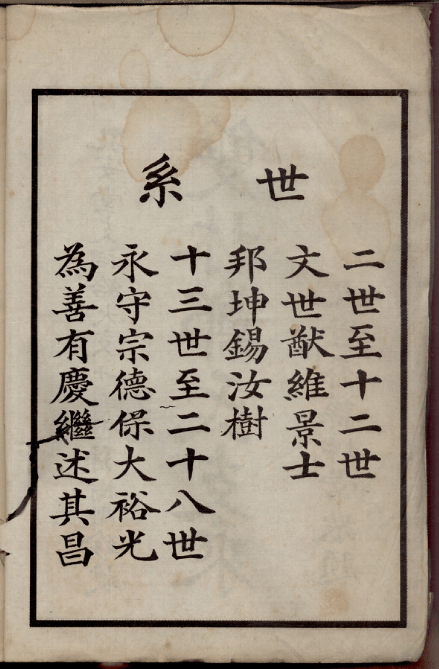 世系
二世至十二世
文世猷維景士
邦坤錫汝樹
十三世至二十八世
永守宗德保大裕光
為善有慶繼述其昌